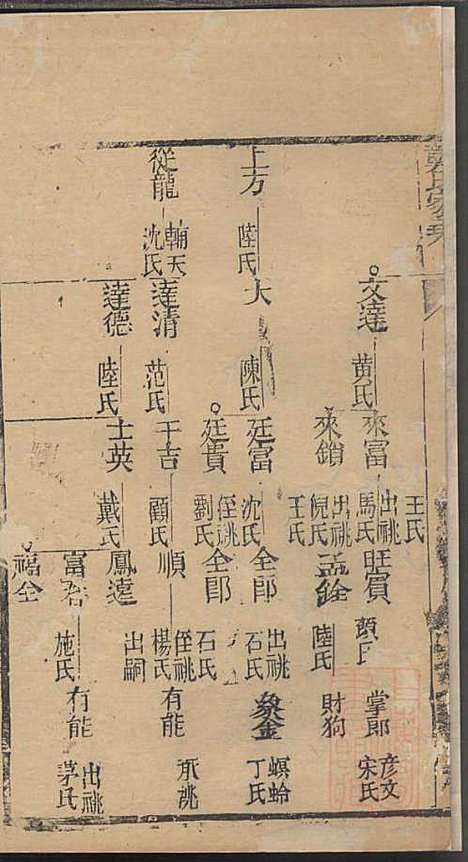 王氏
文達
黄氏
來富
出祧
馬氏
旺賓
顧氏
掌郎
彦文
宋氏
來鎖
出祧
倪氏
王氏
孟銓
陸氏
財狗
上方
陸氏
大
陳氏
廷富
沈氏
全郎
出祧
石氏
象金
螟蛉
丁氏
廷貴
侄祧
劉氏
全郎
石氏
從龍
輔天
沈氏
達清
范氏
于吉
顧氏
順
侄祧
楊氏
有能
承祧
達德
陸氏
士英
戴氏
鳳達
出嗣
富君
施氏
有能
出祧
茅氏
福全